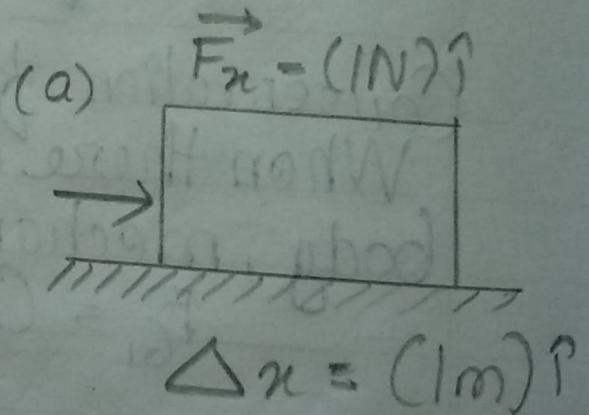 (a) F⃗x = (1N) î
Δx = (1m) î